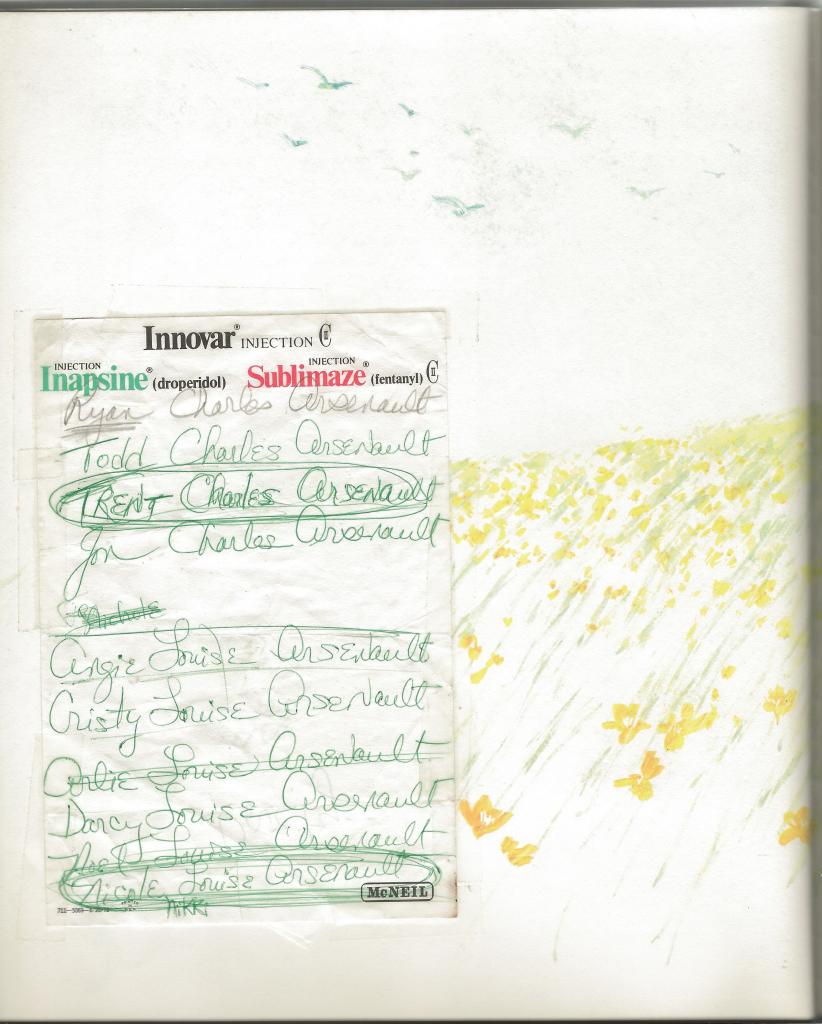 Innovar® INJECTION CII
INJECTION INJECTION
Inapsine® (droperidol) Sublimaze® (fentanyl) CII
Ryan Charles Arsenault
Todd Charles Arsenault
TRENT Charles Arsenault
Jon Charles Arsenault
Angie Louise Arsenault
Cristy Louise Arsenault
Louise Arsenault
Darcy Louise Arsenault
Louise Arsenault
Nicole Louise Arsenault
McNEIL
Nikki